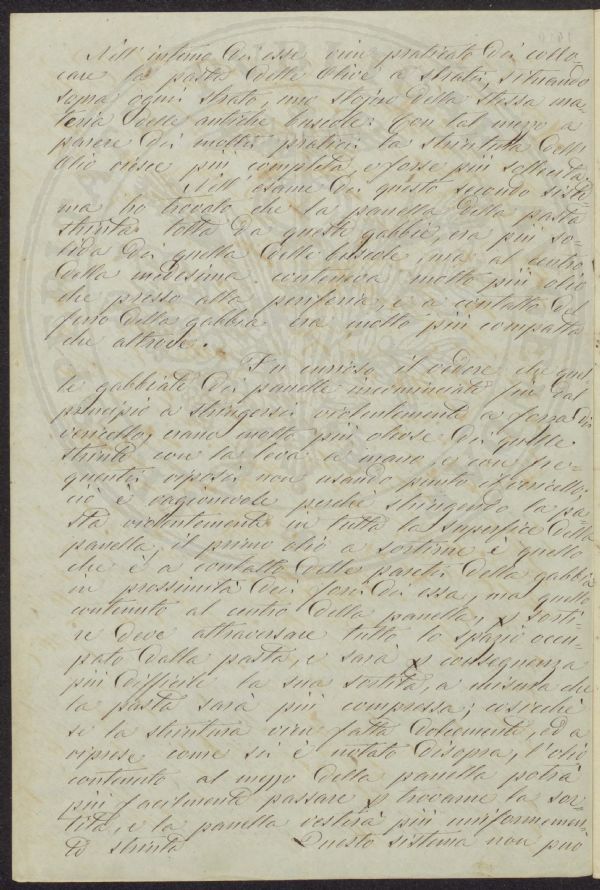 Nell' interno di esse vien praticato di collo-
care la pasta delle Olive a strati, situando
sopra ogni strato, uno stojno della stessa ma-
teria delle antiche buscole: Con tal mezzo a
parere di molti pratici la strintura dell'
Olio riesce più completa, e forse più sollecita.
Nell' esame di questo secondo siste-
ma ho trovato che la panella della pasta
strinta sotto da queste gabbie, era più so-
lida di quella delle buscole, ma al centro
della medesima conteneva molto più olio
che presso alla periferia, e a contatto del
ferro della gabbia era molto più compatta
che altrove.
Fu curioso il vedere che quel-
le gabbiate di panelle incominciate fin dal
principio a stringersi violentemente a forza di
vericello, erano molto più oliose di quelle
strinte con la leva a mano, e con fre-
quenti riposi non usando punto il vericello;
ciò è ragionevole perché stringendo la pa-
sta violentemente in tutta la superfice della
panella, il primo olio a sortirne è quello
che è a contatto delle pareti della gabbia
in prossimità dei fori di essa, ma quello
contenuto al centro della panella, p sorti-
re deve attraversare tutto lo spazio occu-
pato dalla pasta, e sarà p conseguenza
più difficile la sua sortita, a misura che
la pasta sarà più compressa; cosicché
se la strintura vien fatta dolcemente, ed a
riprese come si è notato disopra, l'olio
contenuto al mezzo della panella potrà
più facilmente passare p trovarne la sor-
tita, e la panella resterà più uniformemen-
te strinta Questo sistema non può